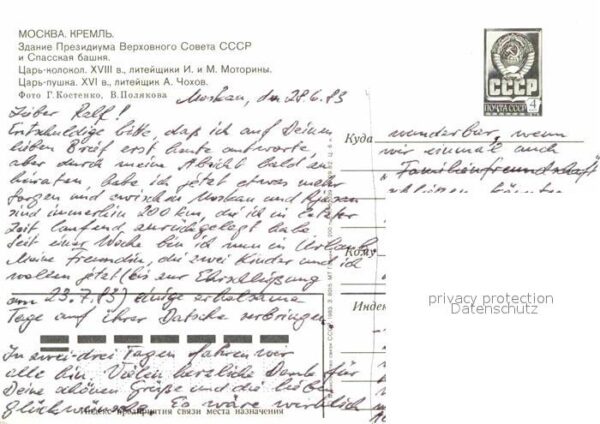 МОСКВА. КРЕМЛЬ.
Здание Президиума Верховного Совета СССР
и Спасская башня.
Царь-колокол. XVIII в., литейщики И. и М. Моторины.
Царь-пушка. XVI в., литейщик А. Чохов.
Фото Г. Костенко, В. Полякова
СССР
ПОЧТА СССР 4
Moskau, den 28.6.83
Lieber Ralf!
Entschuldige bitte, daß ich auf Deinen
lieben Brief erst heute antworte,
aber durch meine Absicht bald zu
heiraten, habe ich jetzt etwas mehr
Sorgen und zwischen Moskau und Rjasan
sind immerhin 200 km, die ich in letzter
Zeit laufend zurückgelegt habe.
Seit einer Woche bin ich nun in Urlaub.
Meine Freundin, die zwei Kinder und ich
wollen jetzt (bis zur Eheschließung
am 23.7.83) einige erholsame
Tage auf ihrer Datsche verbringen.
In zwei-drei Tagen fahren wir
alle hin. Vielen herzliche Dank für
Deine schönen Grüße und die lieben
Glückwünsche. Es wäre wirklich
Куда
wunderbar, wenn
wir einmal auch
Familienfreundschaft
schließen könnten
Кому
Индекс предприятия связи места назначения
privacy protection
Datenschutz